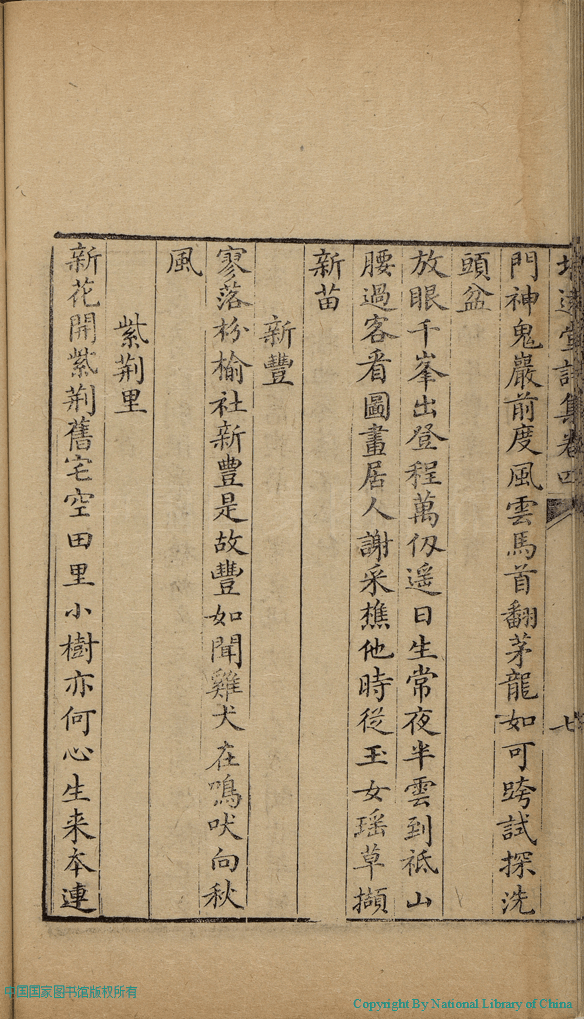 堂詩集卷四
七
門神鬼巖前度風雲馬首翻茅龍如可跨試探洗
頭盆
放眼千峯出登程萬仭遥日生常夜半雲到袛山
腰過客看圖畫居人謝采樵他時從玉女瑶草擷
新苗
新豐
寥落枌榆社新豐是故豐如聞雞犬在鳴吠向秋
風
紫荆里
新花開紫荆舊宅空田里小樹亦何心生来本連
中国国家图书馆版权所有
Copyright By National Library of China